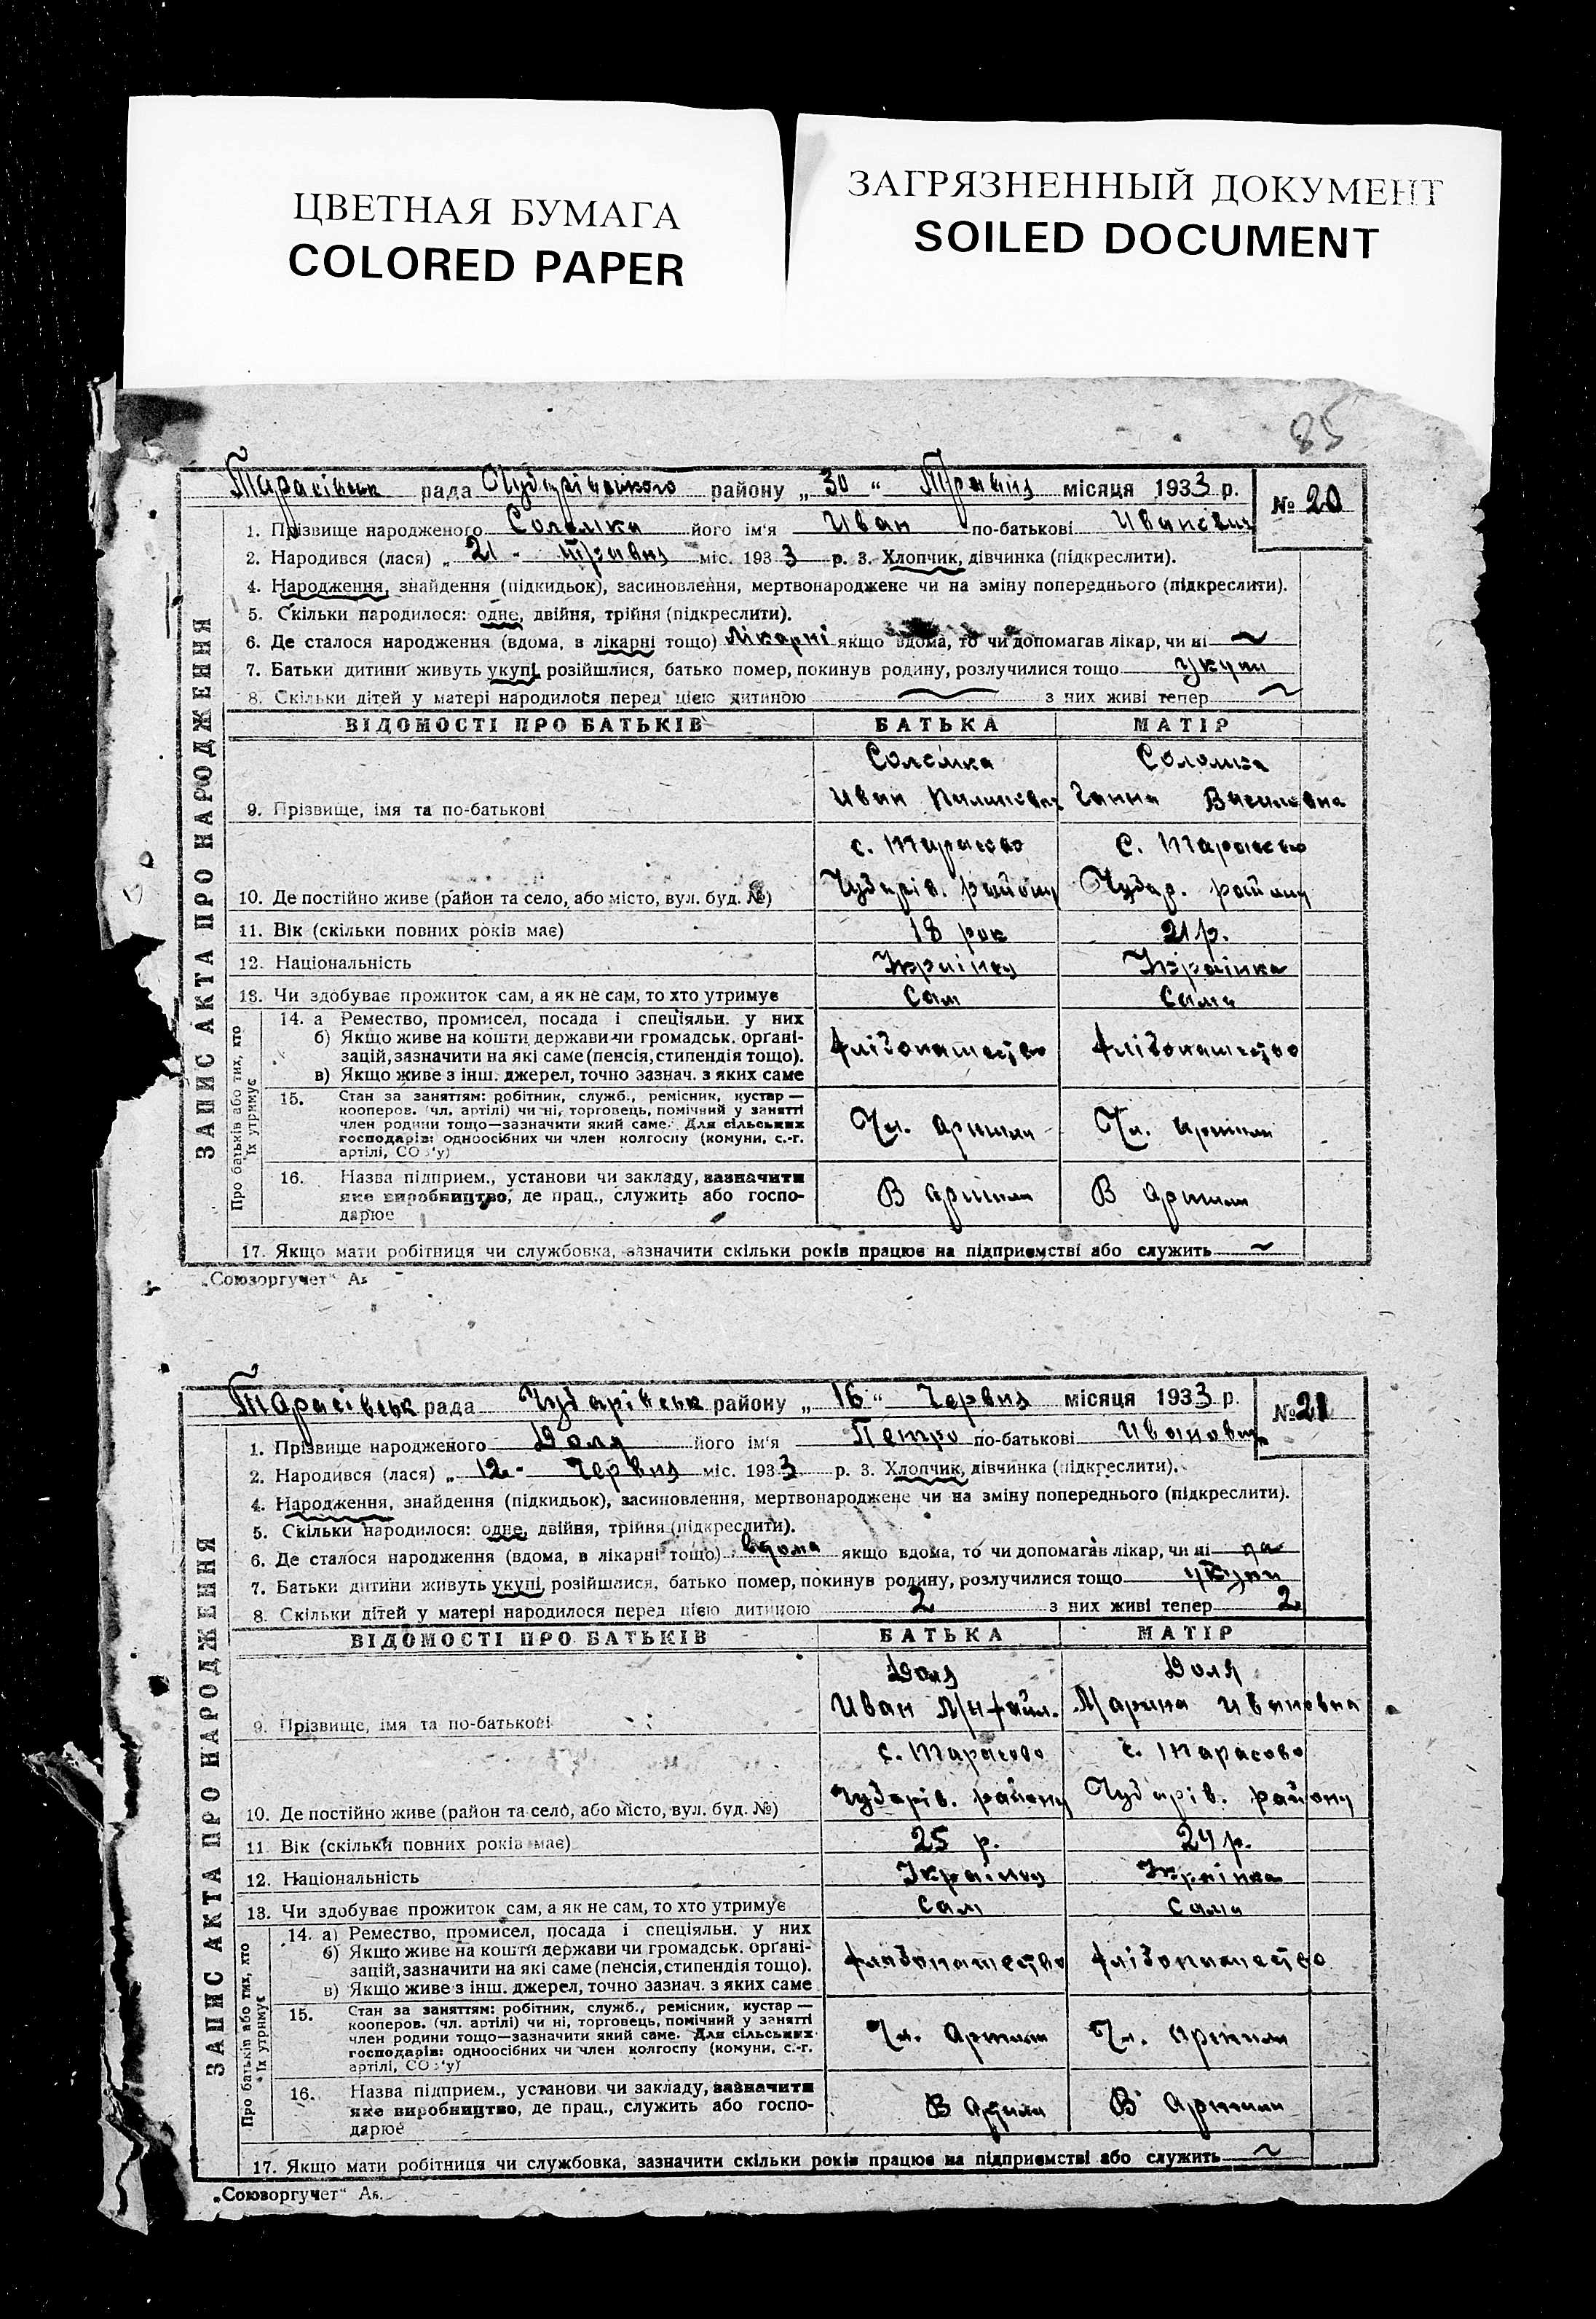 ЦВЕТНАЯ БУМАГА
COLORED PAPER
ЗАГРЯЗНЕННЫЙ ДОКУМЕНТ
SOILED DOCUMENT
85
ЗАПИС АКТА ПРО НАРОДЖЕННЯ
Тарасівськ рада Чубарівського району „ 30 “ Травня місяця 1933 р. № 20
1. Прізвище народженого Соломка його ім'я Иван по-батькові Иванович
2. Народився (лася) „ 21 - травня міс. 1933 р. 3. Хлопчик, дівчинка (підкреслити).
4. Народження, знайдення (підкидьок), засиновлення, мертвонароджене чи на зміну попереднього (підкреслити).
5. Скільки народилося: одне, двійня, трійня (підкреслити).
6. Де сталося народження (вдома, в лікарні тощо) Лікарні якщо вдома, то чи допомагав лікар, чи ні ~
7. Батьки дитини живуть укупі, розійшлися, батько помер, покинув родину, розлучилися тощо укупи
8. Скільки дітей у матері народилося перед цією дитиною ~ з них живі тепер ~
ВІДОМОСТІ ПРО БАТЬКІВ БАТЬКА МАТІР
Соломка Соломка
9. Прізвище, імя та по-батькові Иван Ганна Василовна
с. Тарасово С. Тарасово
10. Де постійно живе (район та село, або місто, вул. буд. №) Чубарів. району Чубар. району
11. Вік (скільки повних років має) 18 рок 21 р.
12. Національність Українец Українка
13. Чи здобуває прожиток сам, а як не сам, то хто утримує Сам Сама
Про батьків або тих, хто їх утримує
14. а Ремество, промисел, посада і спеціяльн. у них
б) Якщо живе на кошти держави чи громадськ. орґані-
зацій, зазначити на які саме (пенсія, стипендія тощо). Хлібопашество Хлібопашество
в) Якщо живе з інш. джерел, точно зазнач. з яких саме
15. Стан за заняттям: робітник, служб., ремісник, кустар —
кооперов. (чл. артілі) чи ні, торговець, помічний у занятті
член родини тощо—зазначити який саме. Для сільських Чл. Артили Чл. Артили
господарів: одноосібних чи член колгоспу (комуни, с.-г.
артілі, СО 'у)
16. Назва підприєм., установи чи закладу, зазначити
яке виробництво, де прац., служить або госпо- В Артили В Артили
дарює
17. Якщо мати робітниця чи службовка, зазначити скільки років працює на підприємстві або служить ~
„Союзоргучет“
ЗАПИС АКТА ПРО НАРОДЖЕННЯ
Тарасівськ рада Чубарівськ району „ 16 “ Червня місяця 1933 р. № 21
1. Прізвище народженого Доля його ім'я Петро по-батькові Иванович
2. Народився (лася) „ 12 - Червня міс. 1933 р. 3. Хлопчик, дівчинка (підкреслити).
4. Народження, знайдення (підкидьок), засиновлення, мертвонароджене чи на зміну попереднього (підкреслити).
5. Скільки народилося: одне, двійня, трійня (підкреслити).
6. Де сталося народження (вдома, в лікарні тощо) вдома якщо вдома, то чи допомагав лікар, чи ні да
7. Батьки дитини живуть укупі, розійшлися, батько помер, покинув родину, розлучилися тощо укупи
8. Скільки дітей у матері народилося перед цією дитиною 2 з них живі тепер 2
ВІДОМОСТІ ПРО БАТЬКІВ БАТЬКА МАТІР
Доля Доля
9. Прізвище, імя та по-батькові Иван Михайл. Марина Ивановна
с. Тарасово с. Тарасово
10. Де постійно живе (район та село, або місто, вул. буд. №) Чубарів. району Чубарів. району
11. Вік (скільки повних років має) 25 р. 24 р.
12. Національність Українец Українка
13. Чи здобуває прожиток сам, а як не сам, то хто утримує Сам Сама
Про батьків або тих, хто їх утримує
14. а) Ремество, промисел, посада і спеціяльн. у них
б) Якщо живе на кошти держави чи громадськ. орґані-
зацій, зазначити на які саме (пенсія, стипендія тощо). Хлібопашество Хлібопашество
в) Якщо живе з інш. джерел, точно зазнач. з яких саме
15. Стан за заняттям: робітник, служб., ремісник, кустар —
кооперов. (чл. артілі) чи ні, торговець, помічний у занятті
член родини тощо—зазначити який саме. Для сільських Чл. Артили Чл. Артили
господарів: одноосібних чи член колгоспу (комуни, с.-г.
артілі, СО 'у)
16. Назва підприєм., установи чи закладу, зазначити
яке виробництво, де прац., служить або госпо- В Артили В Артили
дарює
17. Якщо мати робітниця чи службовка, зазначити скільки років працює на підприємстві або служить ~
„Союзоргучет“